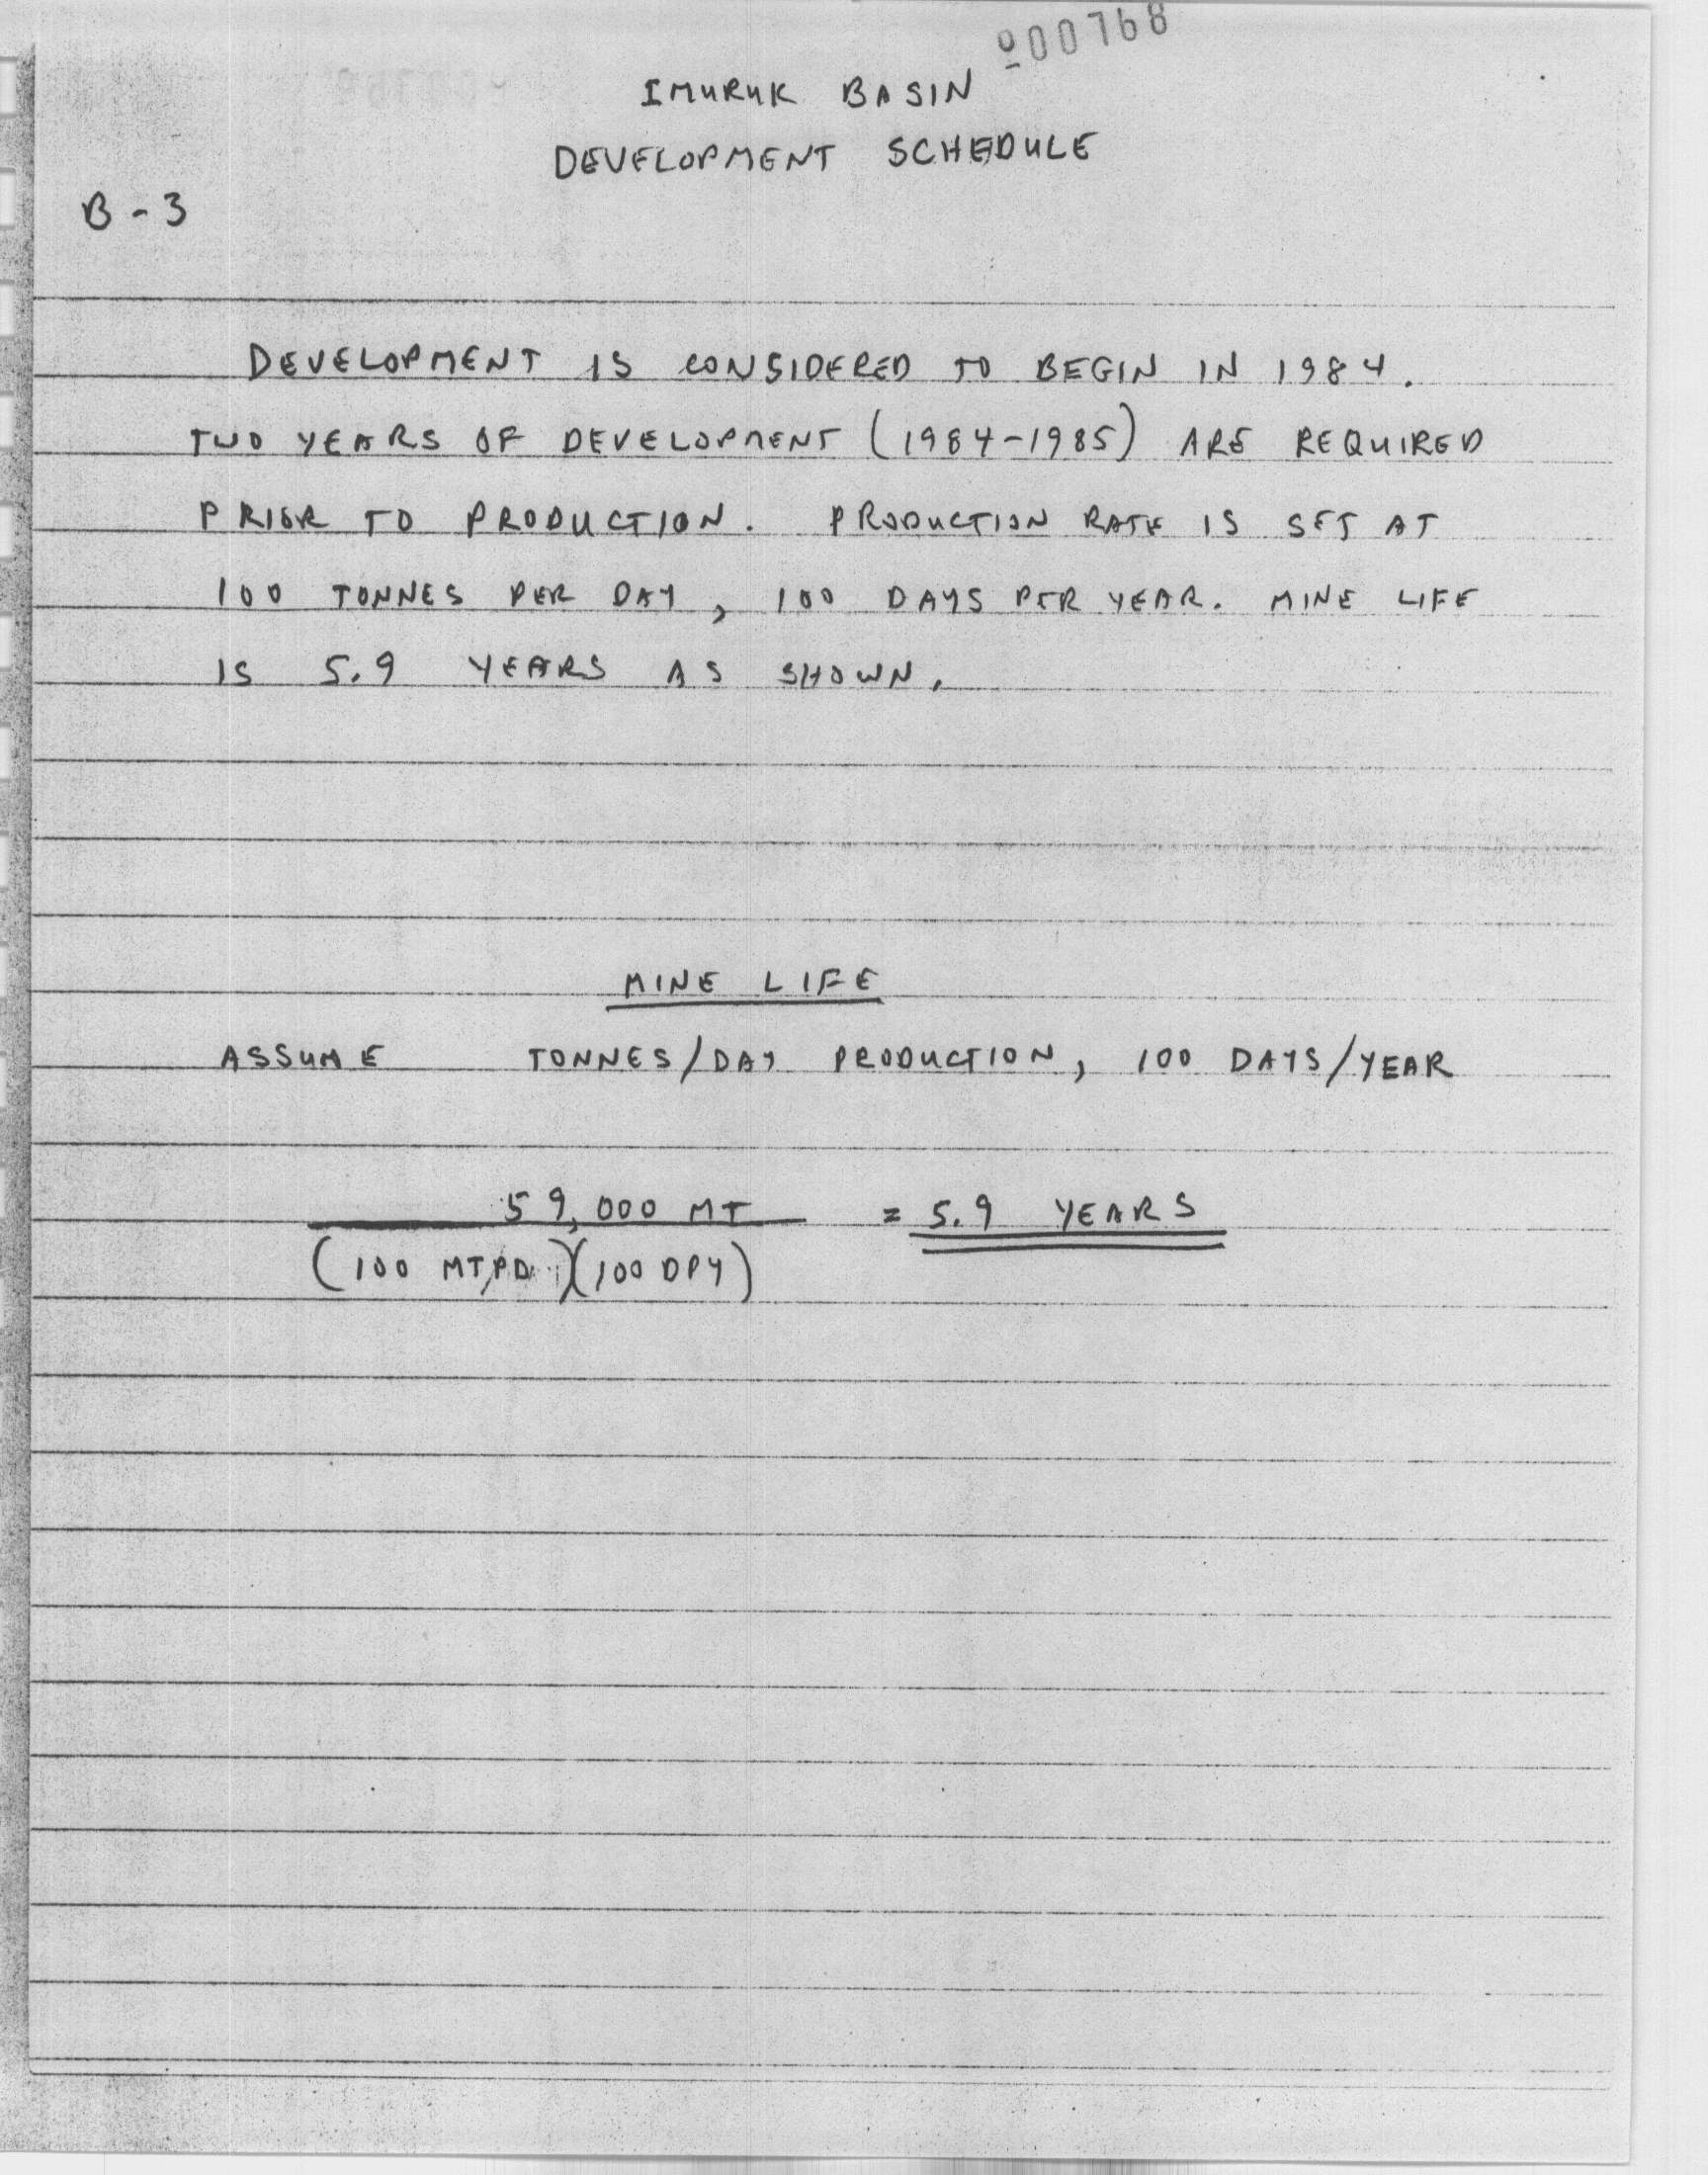 000768
IMURUK BASIN
DEVELOPMENT SCHEDULE
B-3
DEVELOPMENT IS CONSIDERED TO BEGIN IN 1984.
TWO YEARS OF DEVELOPMENT (1984-1985) ARE REQUIRED
PRIOR TO PRODUCTION. PRODUCTION RATE IS SET AT
100 TONNES PER DAY, 100 DAYS PER YEAR. MINE LIFE
IS 5.9 YEARS AS SHOWN.
MINE LIFE
ASSUME TONNES/DAY PRODUCTION, 100 DAYS/YEAR
59,000 MT = 5.9 YEARS
(100 MTPD)(100 DPY)